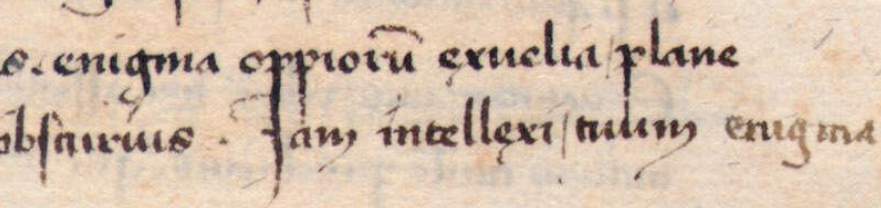 s. enigma oppiorū ex uelia plane
obscurius. Iam intellexi tuum enigma